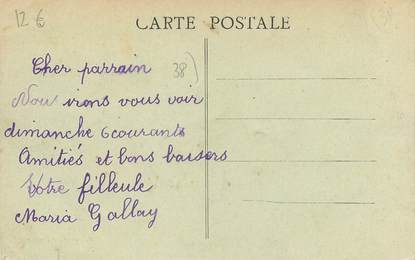 12 €
CARTE POSTALE
Cher parrain
38)
Nous irons vous voir
dimanche 6 courants
Amitiés et bons baisers
Votre filleule
Maria Gallay